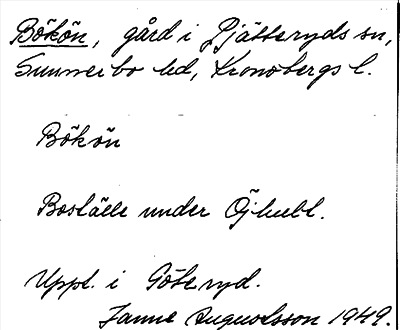 Bökön, gård i Pjätteryds sn,
Sunnerbo hd, Kronobergs l.
Bökön
Boställe under Öjhult.
Uppt. i Göteryd.
Janne Augustsson 1949.